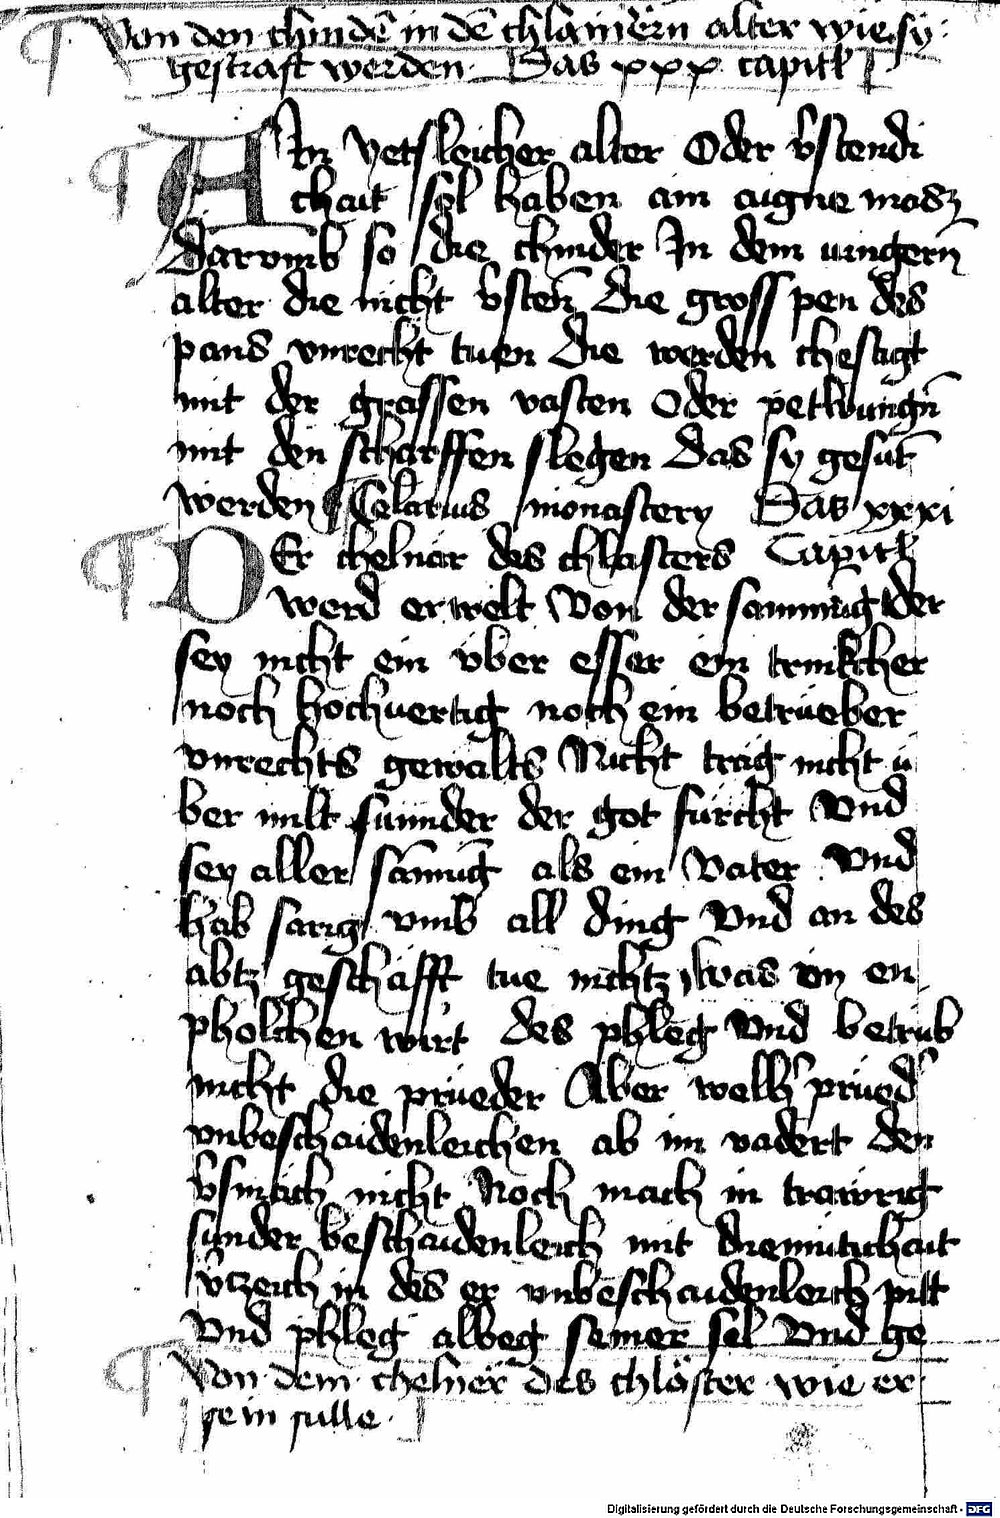 Von den chindē in dē chlainērn alter wie sy
gestraft werden. Das xxx capitl
Ain yetsleicher alter Oder v̄stendi
chait sol haben ain aigne mosz
Darvmb so die chinder In dem iungern̄
alter die nicht v̄sten̄ Die gross pen des
pans vnrecht tuen Die werden chestigt
mit der grassen vasten Oder petwungn̄
mit den scharffen slegen Das sy gesūt
werden Celarius monastery Das xxxi
DEr chelnär des chlosters Capitl
werd erwelt Von der samnūg Oder
sey nicht ein vber esser ein trinkcher
noch hochuertig noch ein betrüeber
vnrechts gewalts Nicht träg nicht ü
ber milt sunder der got fürcht Vnd
sey aller sāmūg als ein Vater Vnd
hab sarig vmb all ding Vnd an des
abtz geschäfft tue nichtz was im en
pholchen wirt des phleg Vnd betrüb
nicht die prüeder Aber welh̄ prued̄
vnbeschaidenleichen ab im vadert den
v̄smäch nicht Noch mach in trawrig
sunder beschaidenleich mit diemütichait
v̄zeich in des er vnbeschaidenleich pitt
Vnd phleg albeg seiner sel Vnd ge
Von dem chelner des chloster wie er
sein sulle